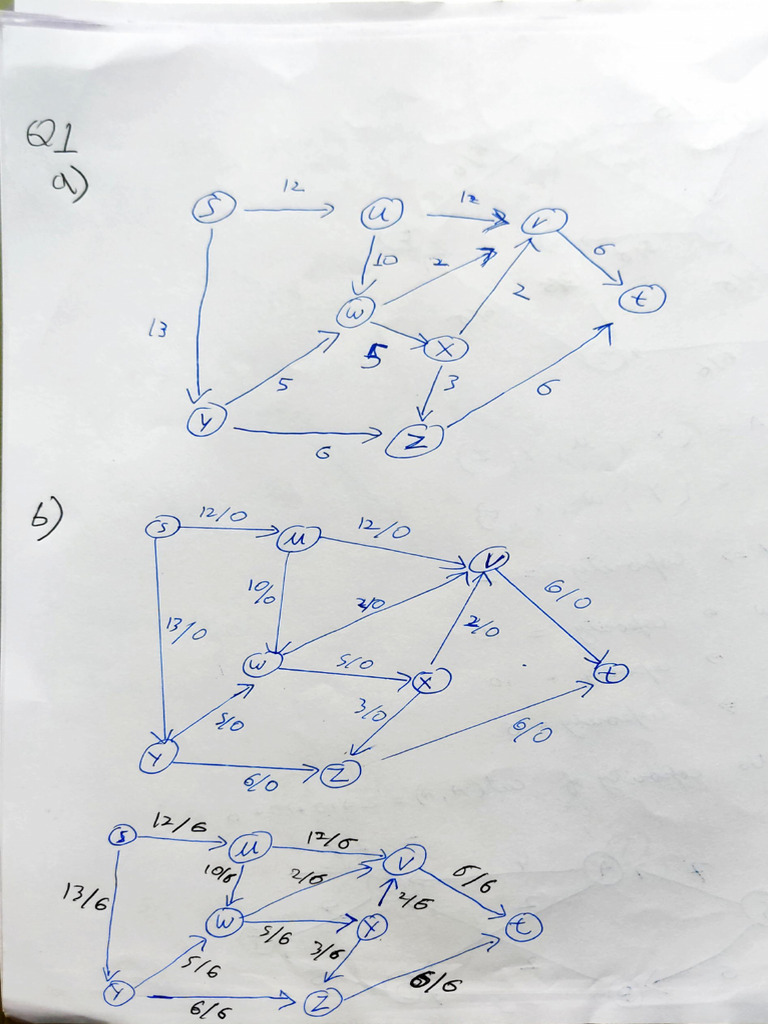 Q1
a)
S 12 u 12 v
10 2 6
w 2 t
13 5 x
5 3 6
y 6 z
b)
S 12/0 u 12/0 v
10/0 2/0 6/0
13/0 2/0
w 5/0 x t
5/0 3/0
y 6/0 z 6/0
S 12/6 u 12/6 v
10/6 2/6 6/6
13/6 2/6
w 5/6 x t
5/6 3/6
y 6/6 z 6/6